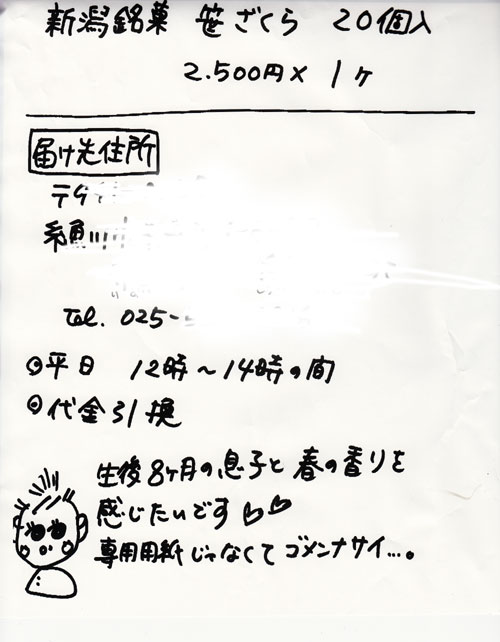 新潟銘菓 笹ざくら 20個入
2.500円× 1ヶ
届け先住所
〒9
糸魚川
Tel. 025-
◎平日 12時〜14時の間
◎代金引換
生後8ヶ月の息子と春の香りを
感じたいです♡♡
専用用紙じゃなくてゴメンナサイ…。